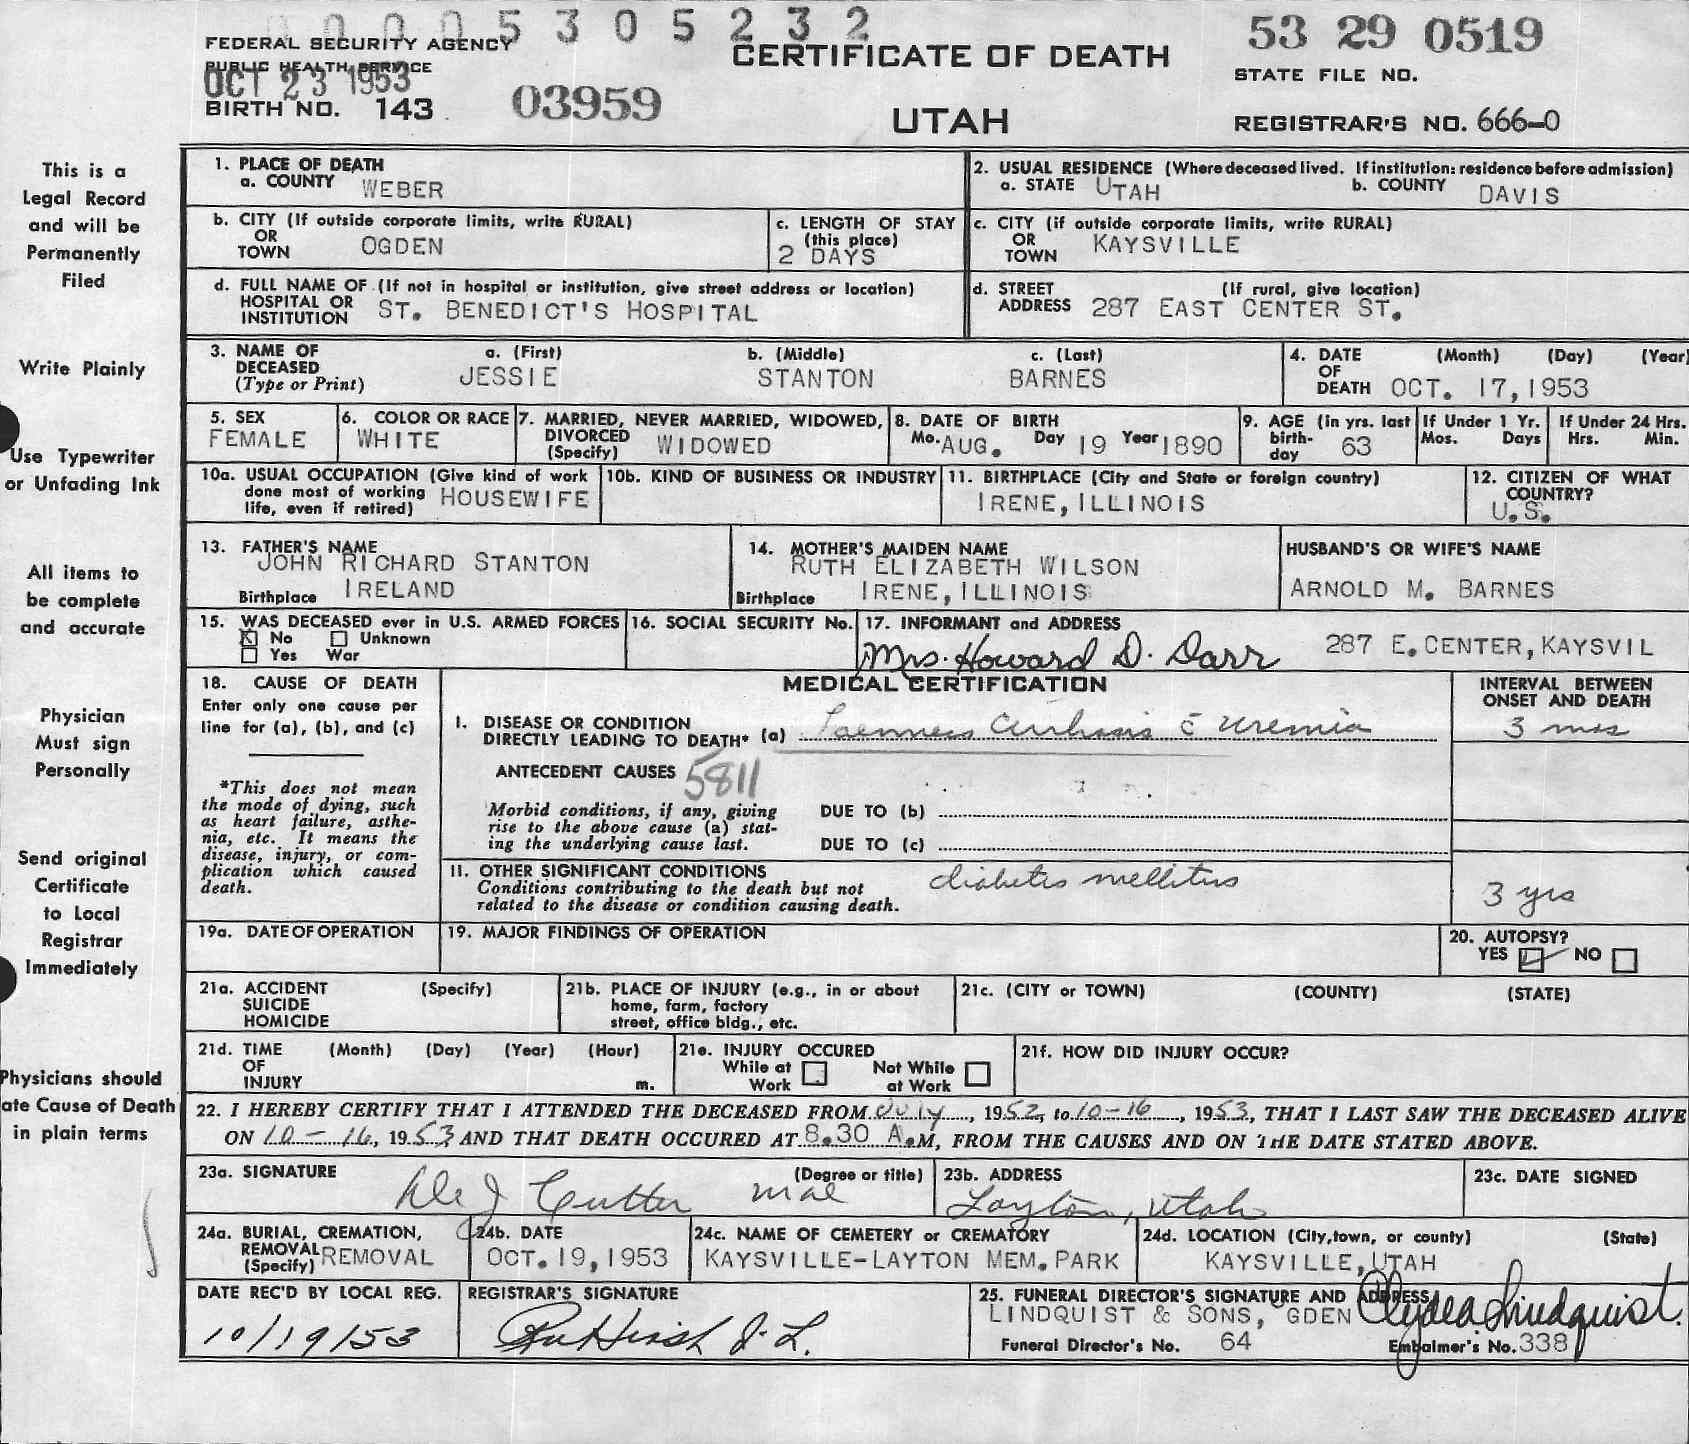 00005305232
FEDERAL SECURITY AGENCY
PUBLIC HEALTH SERVICE
OCT 23 1953
BIRTH NO. 143
03959
CERTIFICATE OF DEATH
UTAH
53 29 0519
STATE FILE NO.
REGISTRAR'S NO. 666-0
This is a
Legal Record
and will be
Permanently
Filed
Write Plainly
Use Typewriter
or Unfading Ink
All items to
be complete
and accurate
Physician
Must sign
Personally
Send original
Certificate
to Local
Registrar
Immediately
Physicians should
ate Cause of Death
in plain terms
1. PLACE OF DEATH
a. COUNTY WEBER
2. USUAL RESIDENCE (Where deceased lived. If institution: residence before admission)
a. STATE UTAH b. COUNTY DAVIS
b. CITY (If outside corporate limits, write RURAL)
OR
TOWN OGDEN
c. LENGTH OF STAY
(this place)
2 DAYS
c. CITY (if outside corporate limits, write RURAL)
OR
TOWN KAYSVILLE
d. FULL NAME OF (If not in hospital or institution, give street address or location)
HOSPITAL OR
INSTITUTION ST. BENEDICT'S HOSPITAL
d. STREET (If rural, give location)
ADDRESS 287 EAST CENTER ST.
3. NAME OF
DECEASED
(Type or Print)
a. (First) b. (Middle) c. (Last)
JESSIE STANTON BARNES
4. DATE (Month) (Day) (Year
OF
DEATH OCT. 17,1953
5. SEX
FEMALE
6. COLOR OR RACE
WHITE
7. MARRIED, NEVER MARRIED, WIDOWED,
DIVORCED
(Specify) WIDOWED
8. DATE OF BIRTH
Mo. AUG. Day 19 Year 1890
9. AGE (in yrs. last
birth-
day 63
If Under 1 Yr.
Mos. Days
If Under 24 Hrs.
Hrs. Min.
10a. USUAL OCCUPATION (Give kind of work
done most of working
life, even if retired) HOUSEWIFE
10b. KIND OF BUSINESS OR INDUSTRY
11. BIRTHPLACE (City and State or foreign country)
IRENE, ILLINOIS
12. CITIZEN OF WHAT
COUNTRY?
U.S.
13. FATHER'S NAME
JOHN RICHARD STANTON
Birthplace IRELAND
14. MOTHER'S MAIDEN NAME
RUTH ELIZABETH WILSON
Birthplace IRENE, ILLINOIS
HUSBAND'S OR WIFE'S NAME
ARNOLD M. BARNES
15. WAS DECEASED ever in U.S. ARMED FORCES
X No Unknown
Yes War
16. SOCIAL SECURITY No.
17. INFORMANT and ADDRESS
Mrs. Howard D. Darr 287 E. CENTER, KAYSVIL
18. CAUSE OF DEATH
Enter only one cause per
line for (a), (b), and (c)
*This does not mean
the mode of dying, such
as heart failure, asthe-
nia, etc. It means the
disease, injury, or com-
plication which caused
death.
MEDICAL CERTIFICATION
INTERVAL BETWEEN
ONSET AND DEATH
I. DISEASE OR CONDITION
DIRECTLY LEADING TO DEATH* (a) Laennecs Cirrhosis c̄ Uremia
3 mos
ANTECEDENT CAUSES 5811
Morbid conditions, if any, giving
rise to the above cause (a) stat-
ing the underlying cause last.
DUE TO (b)
DUE TO (c)
II. OTHER SIGNIFICANT CONDITIONS
Conditions contributing to the death but not
related to the disease or condition causing death.
diabetis mellitus
3 yrs
19a. DATE OF OPERATION
19. MAJOR FINDINGS OF OPERATION
20. AUTOPSY?
YES NO
21a. ACCIDENT (Specify)
SUICIDE
HOMICIDE
21b. PLACE OF INJURY (e.g., in or about
home, farm, factory
street, office bldg., etc.
21c. (CITY or TOWN) (COUNTY) (STATE)
21d. TIME (Month) (Day) (Year) (Hour)
OF
INJURY m.
21e. INJURY OCCURED
While at Not While
Work at Work
21f. HOW DID INJURY OCCUR?
22. I HEREBY CERTIFY THAT I ATTENDED THE DECEASED FROM July, 1952, to 10-16, 1953, THAT I LAST SAW THE DECEASED ALIVE
ON 10-16, 1953 AND THAT DEATH OCCURED AT 8.30 A.M, FROM THE CAUSES AND ON THE DATE STATED ABOVE.
23a. SIGNATURE (Degree or title)
Cutler
23b. ADDRESS
Layton, Utah
23c. DATE SIGNED
24a. BURIAL, CREMATION,
REMOVAL
(Specify) REMOVAL
24b. DATE
OCT. 19,1953
24c. NAME OF CEMETERY or CREMATORY
KAYSVILLE-LAYTON MEM. PARK
24d. LOCATION (City, town, or county) (State)
KAYSVILLE, UTAH
DATE REC'D BY LOCAL REG.
10/19/53
REGISTRAR'S SIGNATURE
25. FUNERAL DIRECTOR'S SIGNATURE AND ADDRESS
LINDQUIST & SONS, OGDEN Clyde A Lindquist.
Funeral Director's No. 64 Embalmer's No. 338